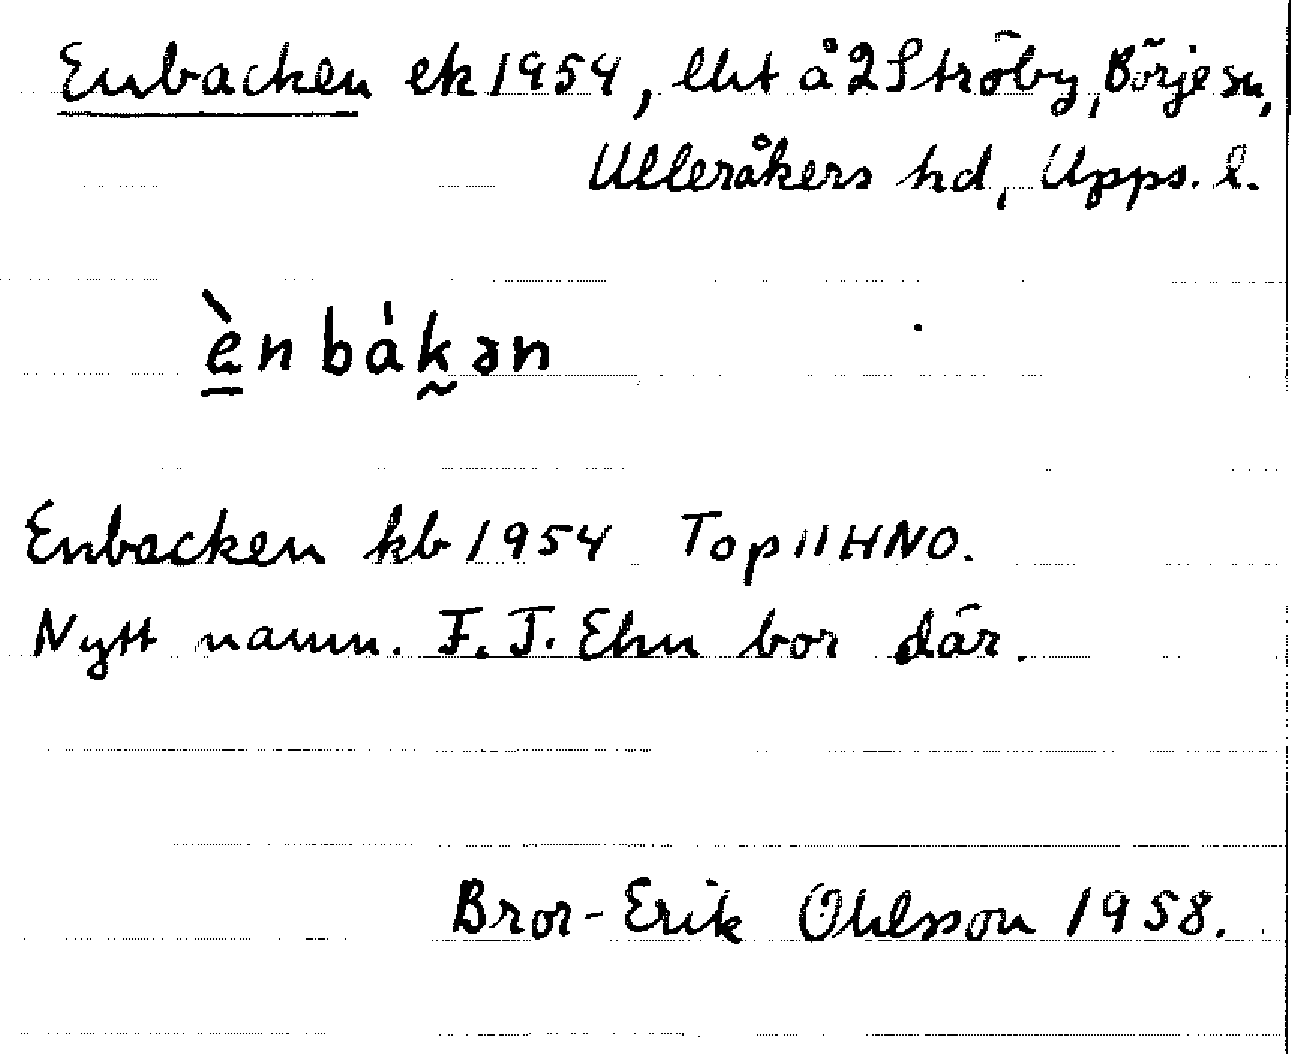 Enbacken ek 1954, lht å 2 Ströby, Börje sn,
Ulleråkers hd, Upps. l.
è̱nbák̰ən
Enbacken kb 1954 Top 11 H NO.
Nytt namn. F. J. Ehn bor där.
Bror-Erik Ohlsson 1958.